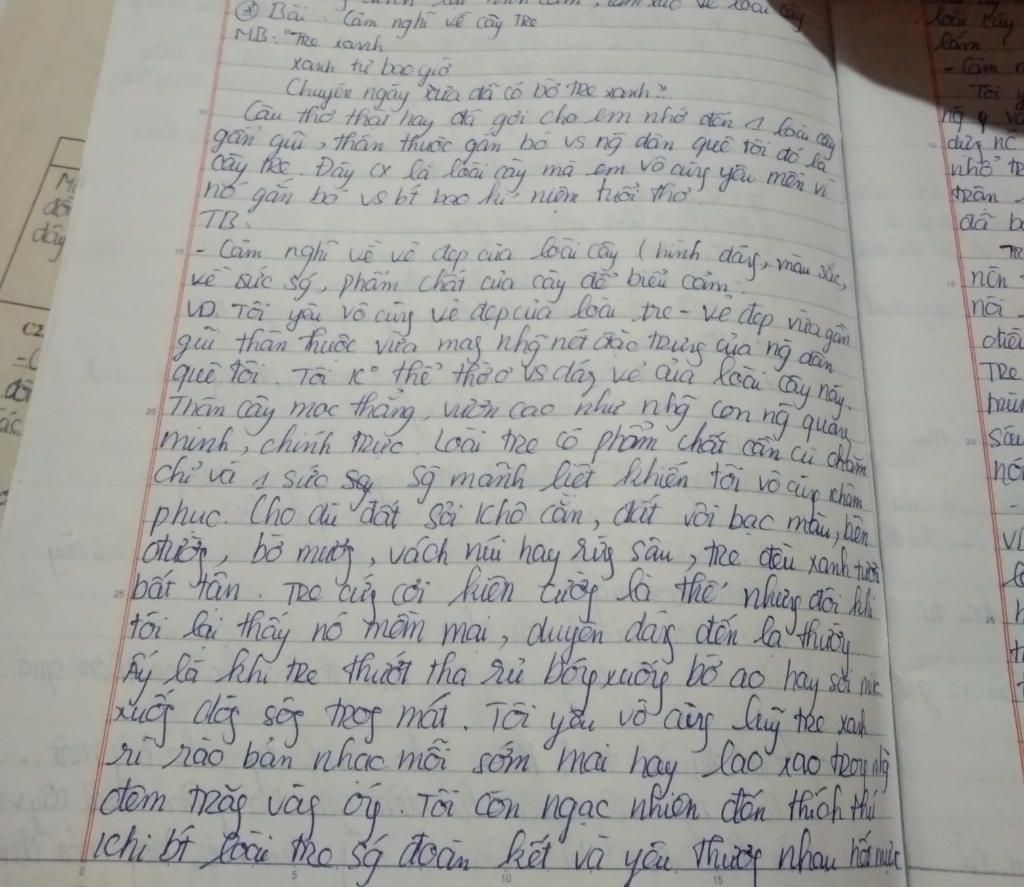 (*) Bài: Cảm nghĩ về cây tre
MB: "Tre xanh
xanh tự bao giờ
Chuyện ngày xưa đã có bờ tre xanh".
Câu thơ thật hay đã gợi cho em nhớ đến 1 loài cây
gần gũi, thân thuộc gắn bó vs ng dân quê tôi đó là
cây tre. Đây cx là loài cây mà em vô cùng yêu mến vì
nó gắn bó vs bt bao kỉ niệm tuổi thơ
TB:
- Cảm nghĩ về vẻ đẹp của loài cây (hình dáng, màu sắc,
về sức sg, phẩm chất của cây để biểu cảm.
VD. Tôi yêu vô cùng vẻ đẹp của loài tre - vẻ đẹp vừa gần
gũi thân thuộc vừa mag nhg nét đặc trưng của ng dân
quê tôi. Tôi K° thể thờ ơ vs dág vẻ của loài cây này.
Thân cây mọc thẳng, vươn cao như nhg con ng quang
minh, chính trực. Loài tre có phẩm chất cần cù chăm
chỉ và 1 sức sg mãnh liệt khiến tôi vô cùg khâm
phục. Cho dù đất sỏi khô cằn, đất vôi bạc màu, bên
đườg, bờ mươg, vách núi hay rừg sâu, tre đều xanh tươi
bất tận. Tre cứg cỏi kiên cườg là thế nhưg đôi khi
tôi lại thấy nó mềm mại, duyên dág đến lạ thườg
Ấy là khi tre thướt tha rủ bóg xuốg bờ ao hay soi
xuốg dòg sôg trog mát. Tôi yêu vô cùg luỹ tre xanh
rì rào bản nhạc mỗi sớm mai hay lao xao trog nhg
đêm trăg vàg óg. Tôi còn ngạc nhiên đến thích thú
khi bt loài tre sg đoàn kết và yêu thươg nhau hết mực
loài cây
lắm
- Cảm
Tôi
dừg
nhỏ
trăn
đã
nên
nói
Tre
sâu
C2